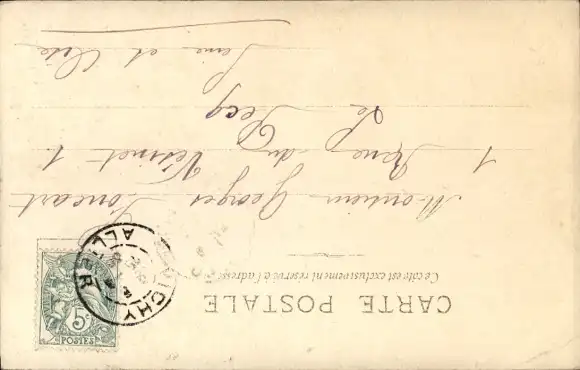 CARTE POSTALE
Ce côté est exclusivement réservé à l'adresse
VICHY
ALLIER
5c
POSTES
Monsieur Georges
1 Rue du Vésinet 1
Le Pecq
Seine et Oise